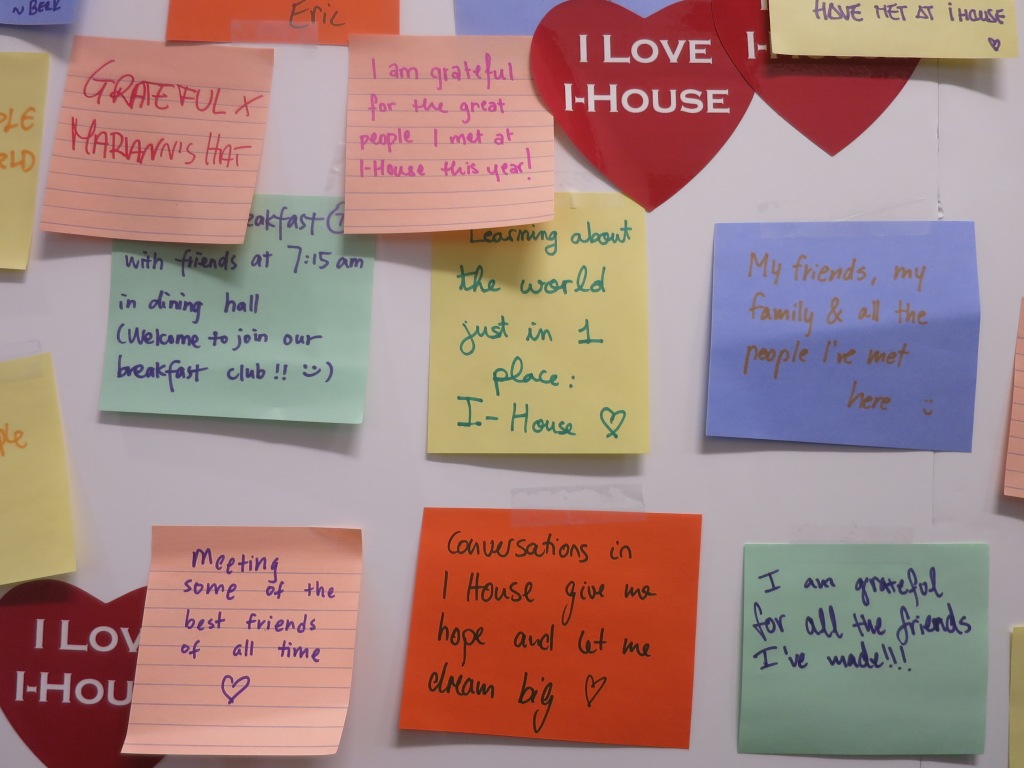 ~ BERK
Eric
HAVE MET AT I HOUSE
I LOVE
I-HOUSE
GRATEFUL X
MARIANN'S HAT
I am grateful
for the great
people I met at
I-House this year!
with friends at 7:15 am
in dining hall
(Welcome to join our
breakfast club!! :))
Learning about
the world
just in 1
place:
I-House ♡
My friends, my
family & all the
people I've met
here :)
I LOV
I-HOU
Meeting
some of the
best friends
of all time
♡
Conversations in
I House give me
hope and let me
dream big ♡
I am grateful
for all the friends
I've made!!!